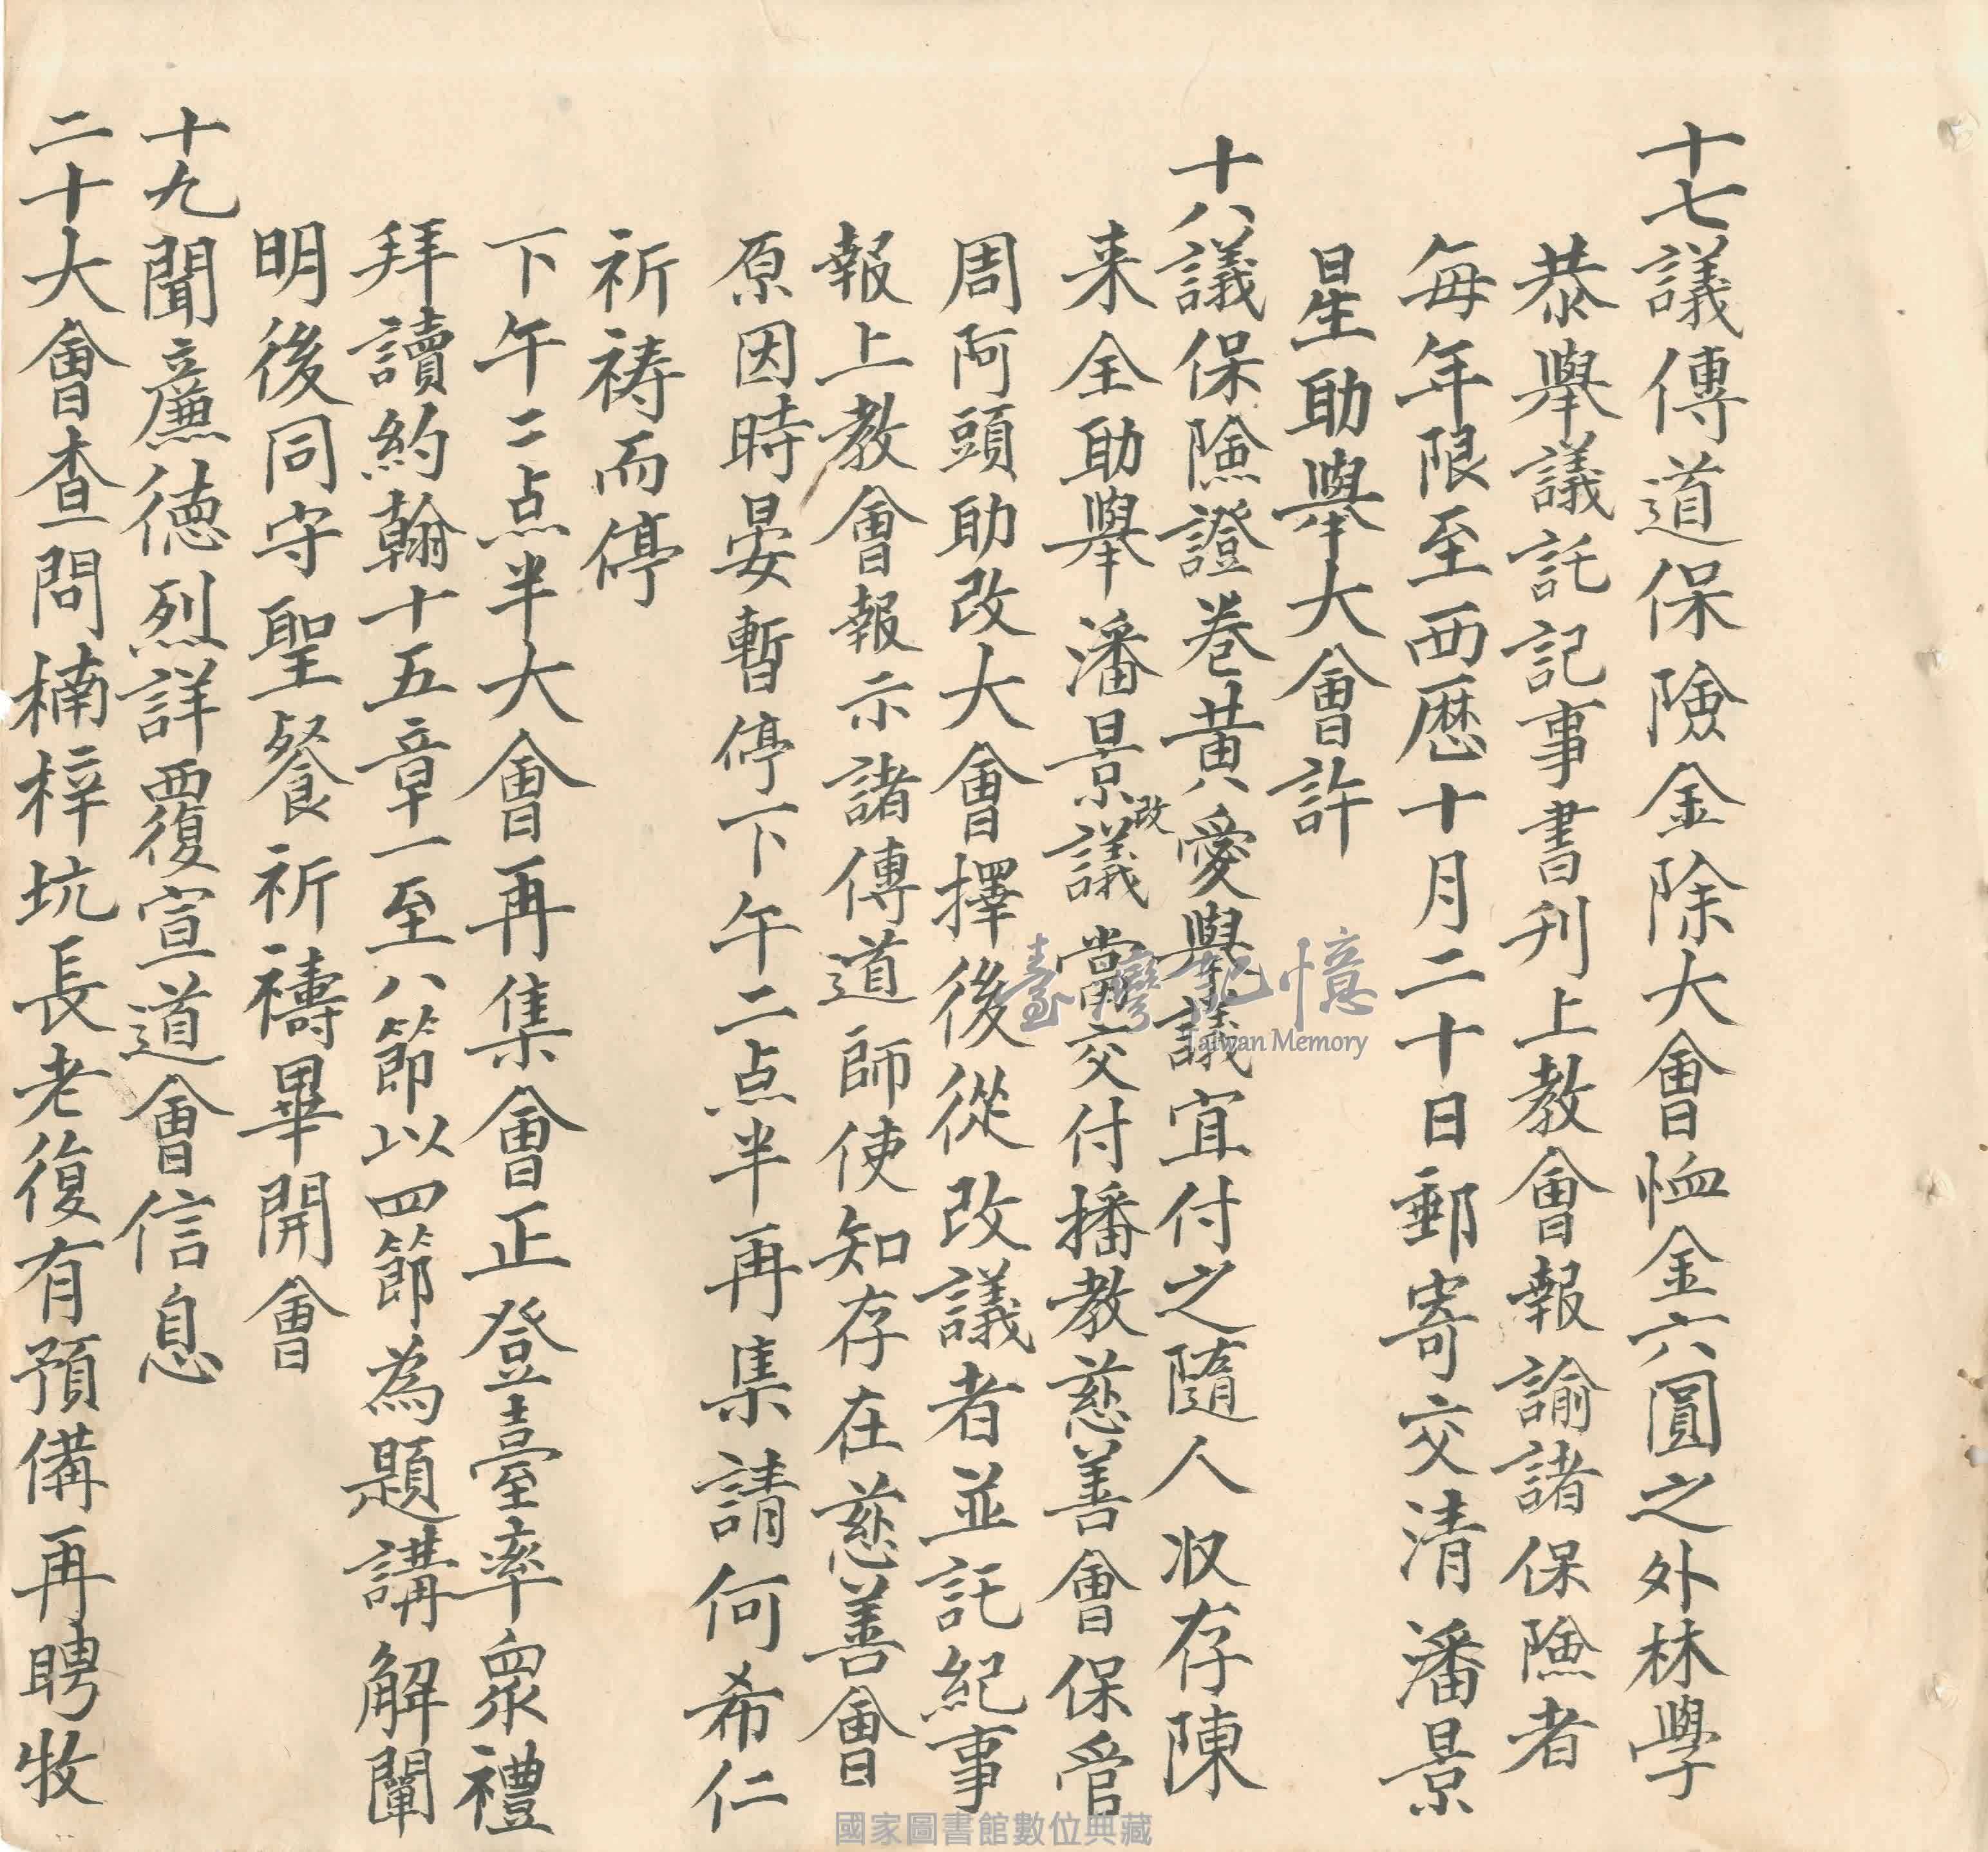 十七議傳道保險金除大會恤金六圓之外林學
恭舉議託記事書刋上教會報諭諸保險者
每年限至西曆十月二十日郵寄交清潘景
星助舉大會許
十八議保險證卷黃愛舉議宜付之隨人收存陳
来全助舉潘景改議當交付播教慈善會保管
周阿頭助改大會擇後從改議者並託紀事
報上教會報示諸傳道師使知存在慈善會
原因時晏暫停下午二点半再集請何希仁
祈祷而停
下午二点半大會再集會正登臺率衆禮
拜讀約翰十五章一至八節以四節為題講解闡
明後同守聖餐祈禱畢開會
十九聞廉德烈詳覆宣道會信息
二十大會查問楠梓坑長老復有預備再聘牧
臺灣記憶
Taiwan Memory
國家圖書館數位典藏